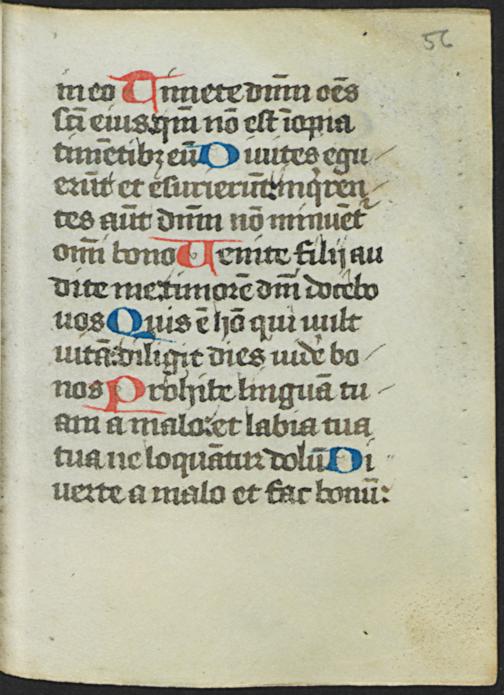 56
in eo Timete dn̄m oēs
sc̄i eius: qm̄ nō est īopia
timētibꝫ eū Diuites egu
erūt et esurierūt: inq̇ren
tes aūt dn̄m nō minuēt᷑
om̄i bono Uenite filij au
dite me: timorē dn̄i docebo
uos Quis ē hō qui uult
uitā: diligit dies uidē bo
nos Prohibe linguā tu
am a malo: et labia tua
tua ne loquātur dolū Di
uerte a malo et fac bonū: